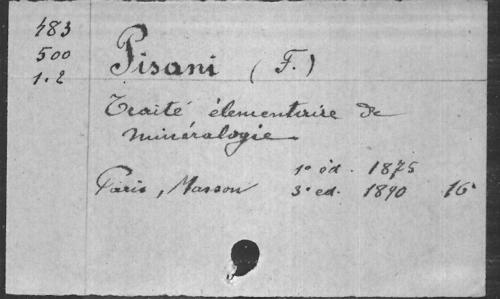 483
500
1.2
Pisani (F.)
Traité élementaire de
minéralogie
1e éd. 1875
Paris, Masson 3e ed. 1890 16°